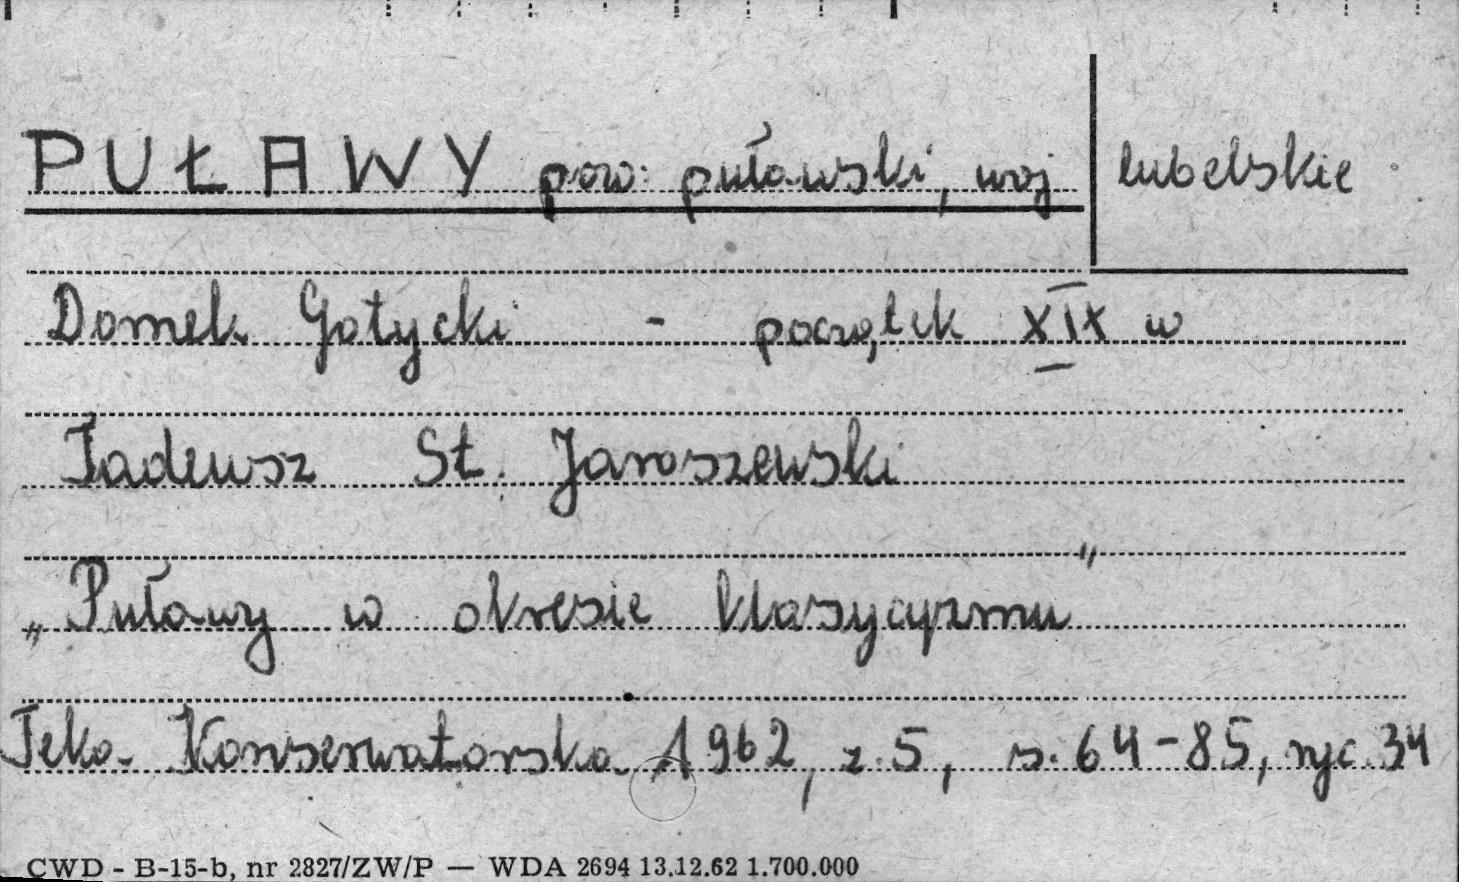 PUŁAWY pow: puławski, woj lubelskie
Domek Gotycki - początek XIX w
Tadeusz St. Jaroszewski
„Puławy w okresie klasycyzmu"
Teka Konserwatorska 1962, z.5, s. 64-85, ryc. 34
CWD - B-15-b, nr 2827/ZW/P — WDA 2694 13.12.62 1.700.000